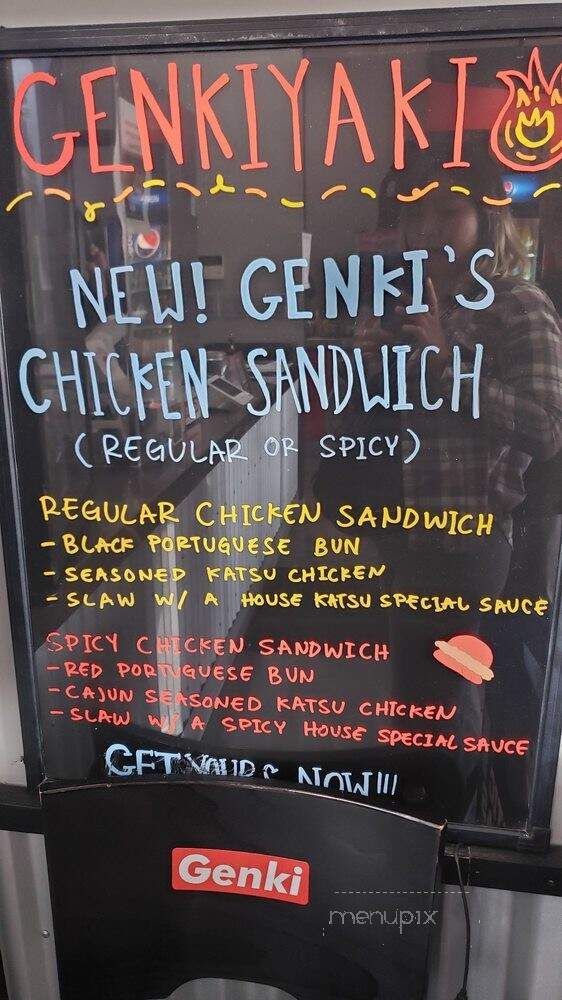 GENKIYAKI
NEW! GENKI'S
CHICKEN SANDWICH
(REGULAR OR SPICY)
REGULAR CHICKEN SANDWICH
- BLACK PORTUGUESE BUN
- SEASONED KATSU CHICKEN
- SLAW W/ A HOUSE KATSU SPECIAL SAUCE
SPICY CHICKEN SANDWICH
- RED PORTUGUESE BUN
- CAJUN SEASONED KATSU CHICKEN
- SLAW W/ A SPICY HOUSE SPECIAL SAUCE
GET YOURS NOW!!!
Genki
menupix